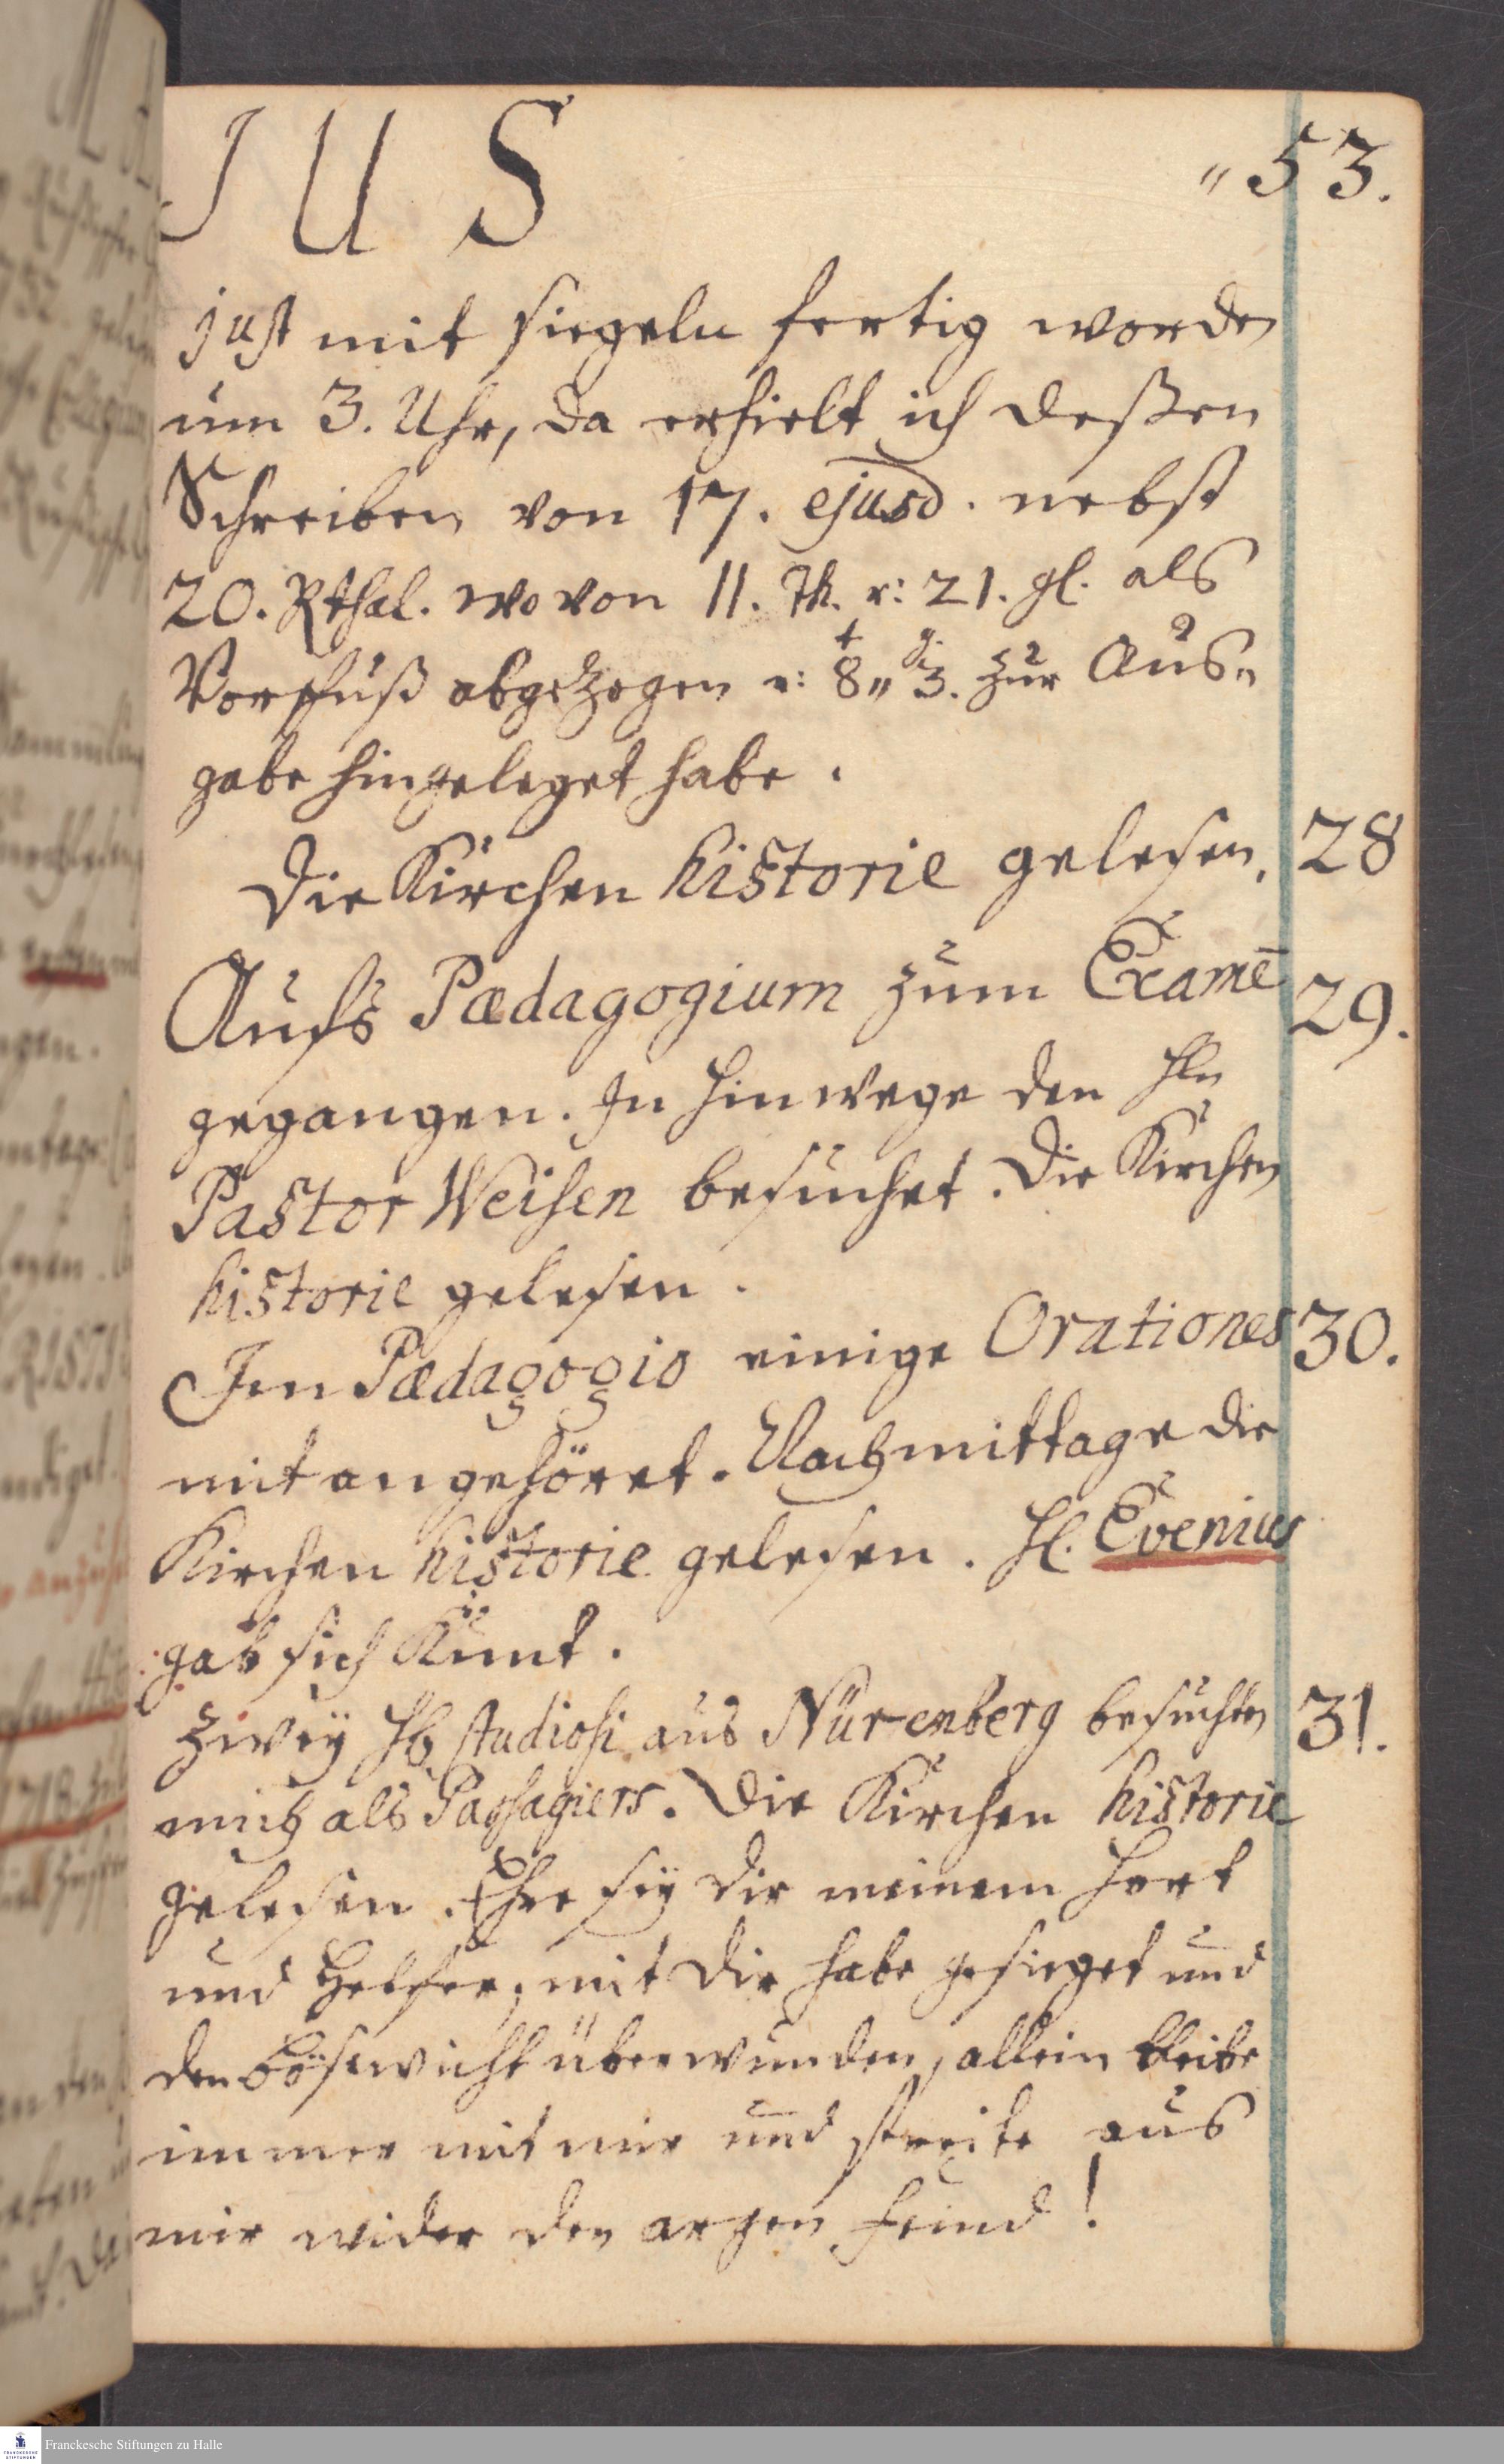 J U S
„ 53.
just mit siegeln fertig worden
um 3. Uhr, da erhielt ich deßen
Schreiben von 17. ejusd. nebst
20. Rthal. wovon 11. Th. u: 21. gl. als
Vorschuß abgezogen u: 8„ 3. zur Aus„
gabe hingeleget habe.
Die Kirchen historie gelesen. 28
Aufs Pædagogium zum Examē 29.
gegangen. In hinwege den Hln
Pastor Weisen besuchet. Die Kirchen
historie gelesen.
Im Pædagogio einige Orationes 30.
mit angehöret. Nachmittage die
Kirchen historie gelesen. Hl. Evenius
gab sich Kunt.
Zwey Hh. studiosi aus Nürenberg besuchten 31.
mich als Passagiers. Die Kirchen historie
gelesen. Ehre sey dir meinem Hort
und Helfer, mit dir habe gesieget und
den bösewicht überwunden, allein bleibe
immer mit mir und streite aus
mir wider den argen Feind!
Franckesche Stiftungen zu Halle